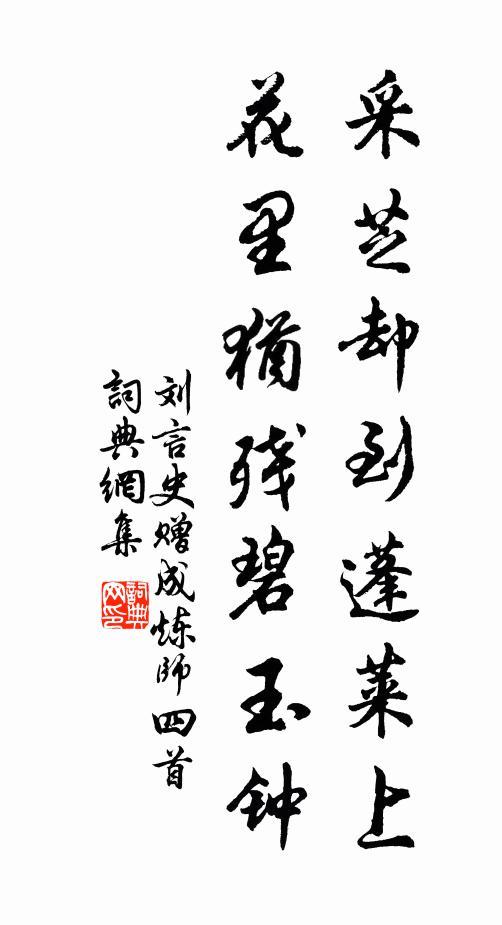 采芝却到蓬莱上
花里猶残碧玉钟
刘言史赠成炼师四首
詞典網集
詞典网印